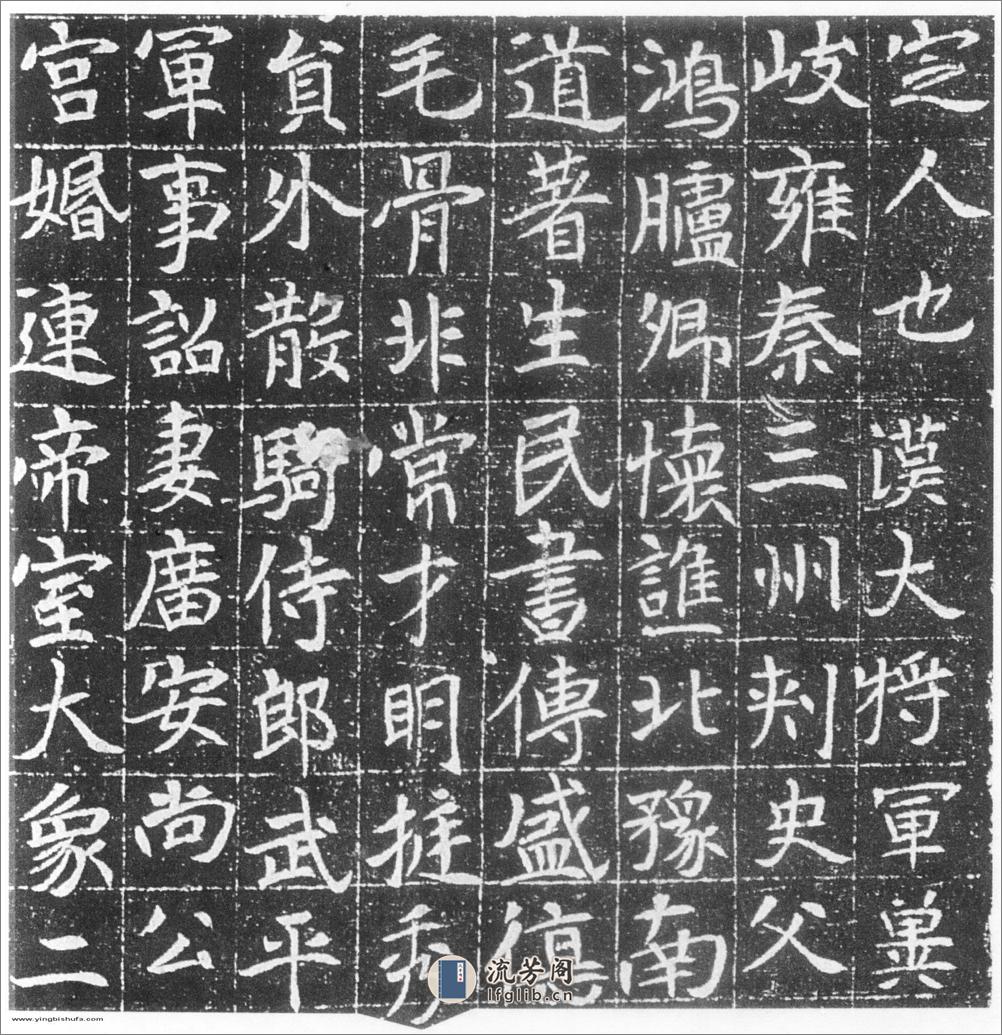 定人也漢大將軍冀
岐雍秦三州刾史父
鴻臚卿懷譙北豫南
道著生民書傳盛德
毛骨非常才明挺秀
貟外散騎侍郎武平
軍事詔妻廣安尚公
宮婚連帝室大象二
流芳閣
lfglib.cn
www.yingbishufa.com